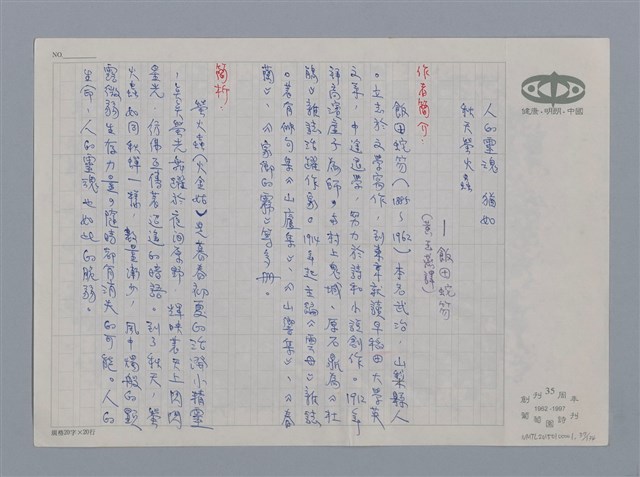 NO.
健康、明朗、中國
人的靈魂　猶如
秋天螢火蟲
—飯田蛇笏
(黃玉燕譯)
作者簡介：
飯田蛇笏(1885～1962)本名武治，山梨縣人
。立志於文學寫作，到東京就讀早稻田大學英
文系，中途退學，努力於詩和小說創作。1912年
拜高濱虛子為師。與村上鬼城、原石鼎為公社
》雜誌活躍作家。1914年起主編《雲母》雜誌
。著有俳句集《山廬集》、《山響集》、《春
蘭》、《家鄉的霧》等多冊。
簡析：
螢火蟲(火金姑)是暮春初夏的活潑小精靈
，點點螢光飛躍於夜間原野，輝映著天上閃閃
星光，仿佛互傳著迢遠的時語。到了秋天，螢
火蟲如同秋蟬一樣，數量漸少，風中燭般的
微弱生存力量，隨時都有消失的可能。人的
生命、人的靈魂也如此的脆弱。
創刊35周年
1962-1997
葡萄園詩刊
規格20字×20行